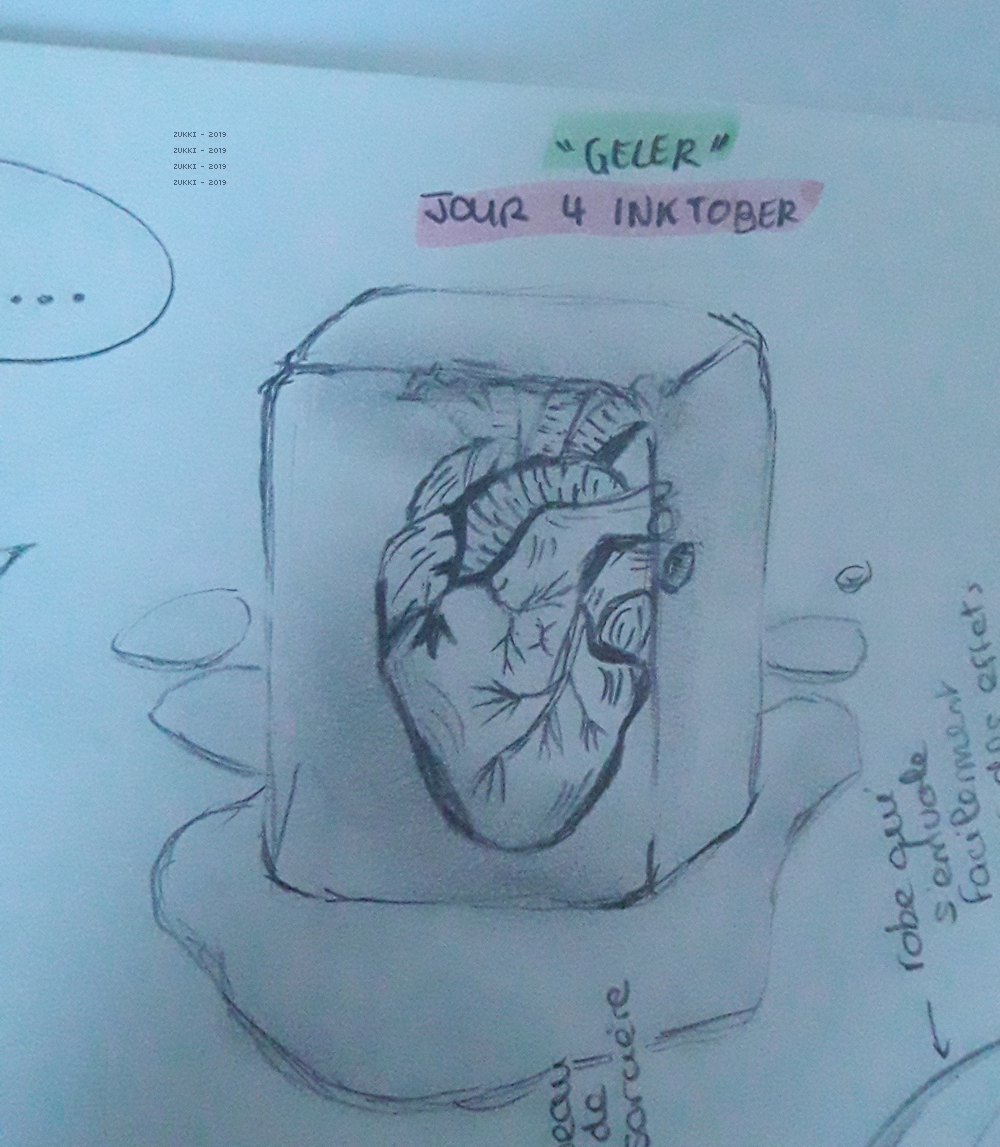 ZUKKI - 2019
ZUKKI - 2019
ZUKKI - 2019
ZUKKI - 2019
"GELER"
JOUR 4 INKTOBER
....
robe qui
s'envole
facilement
effets
de
sorcière